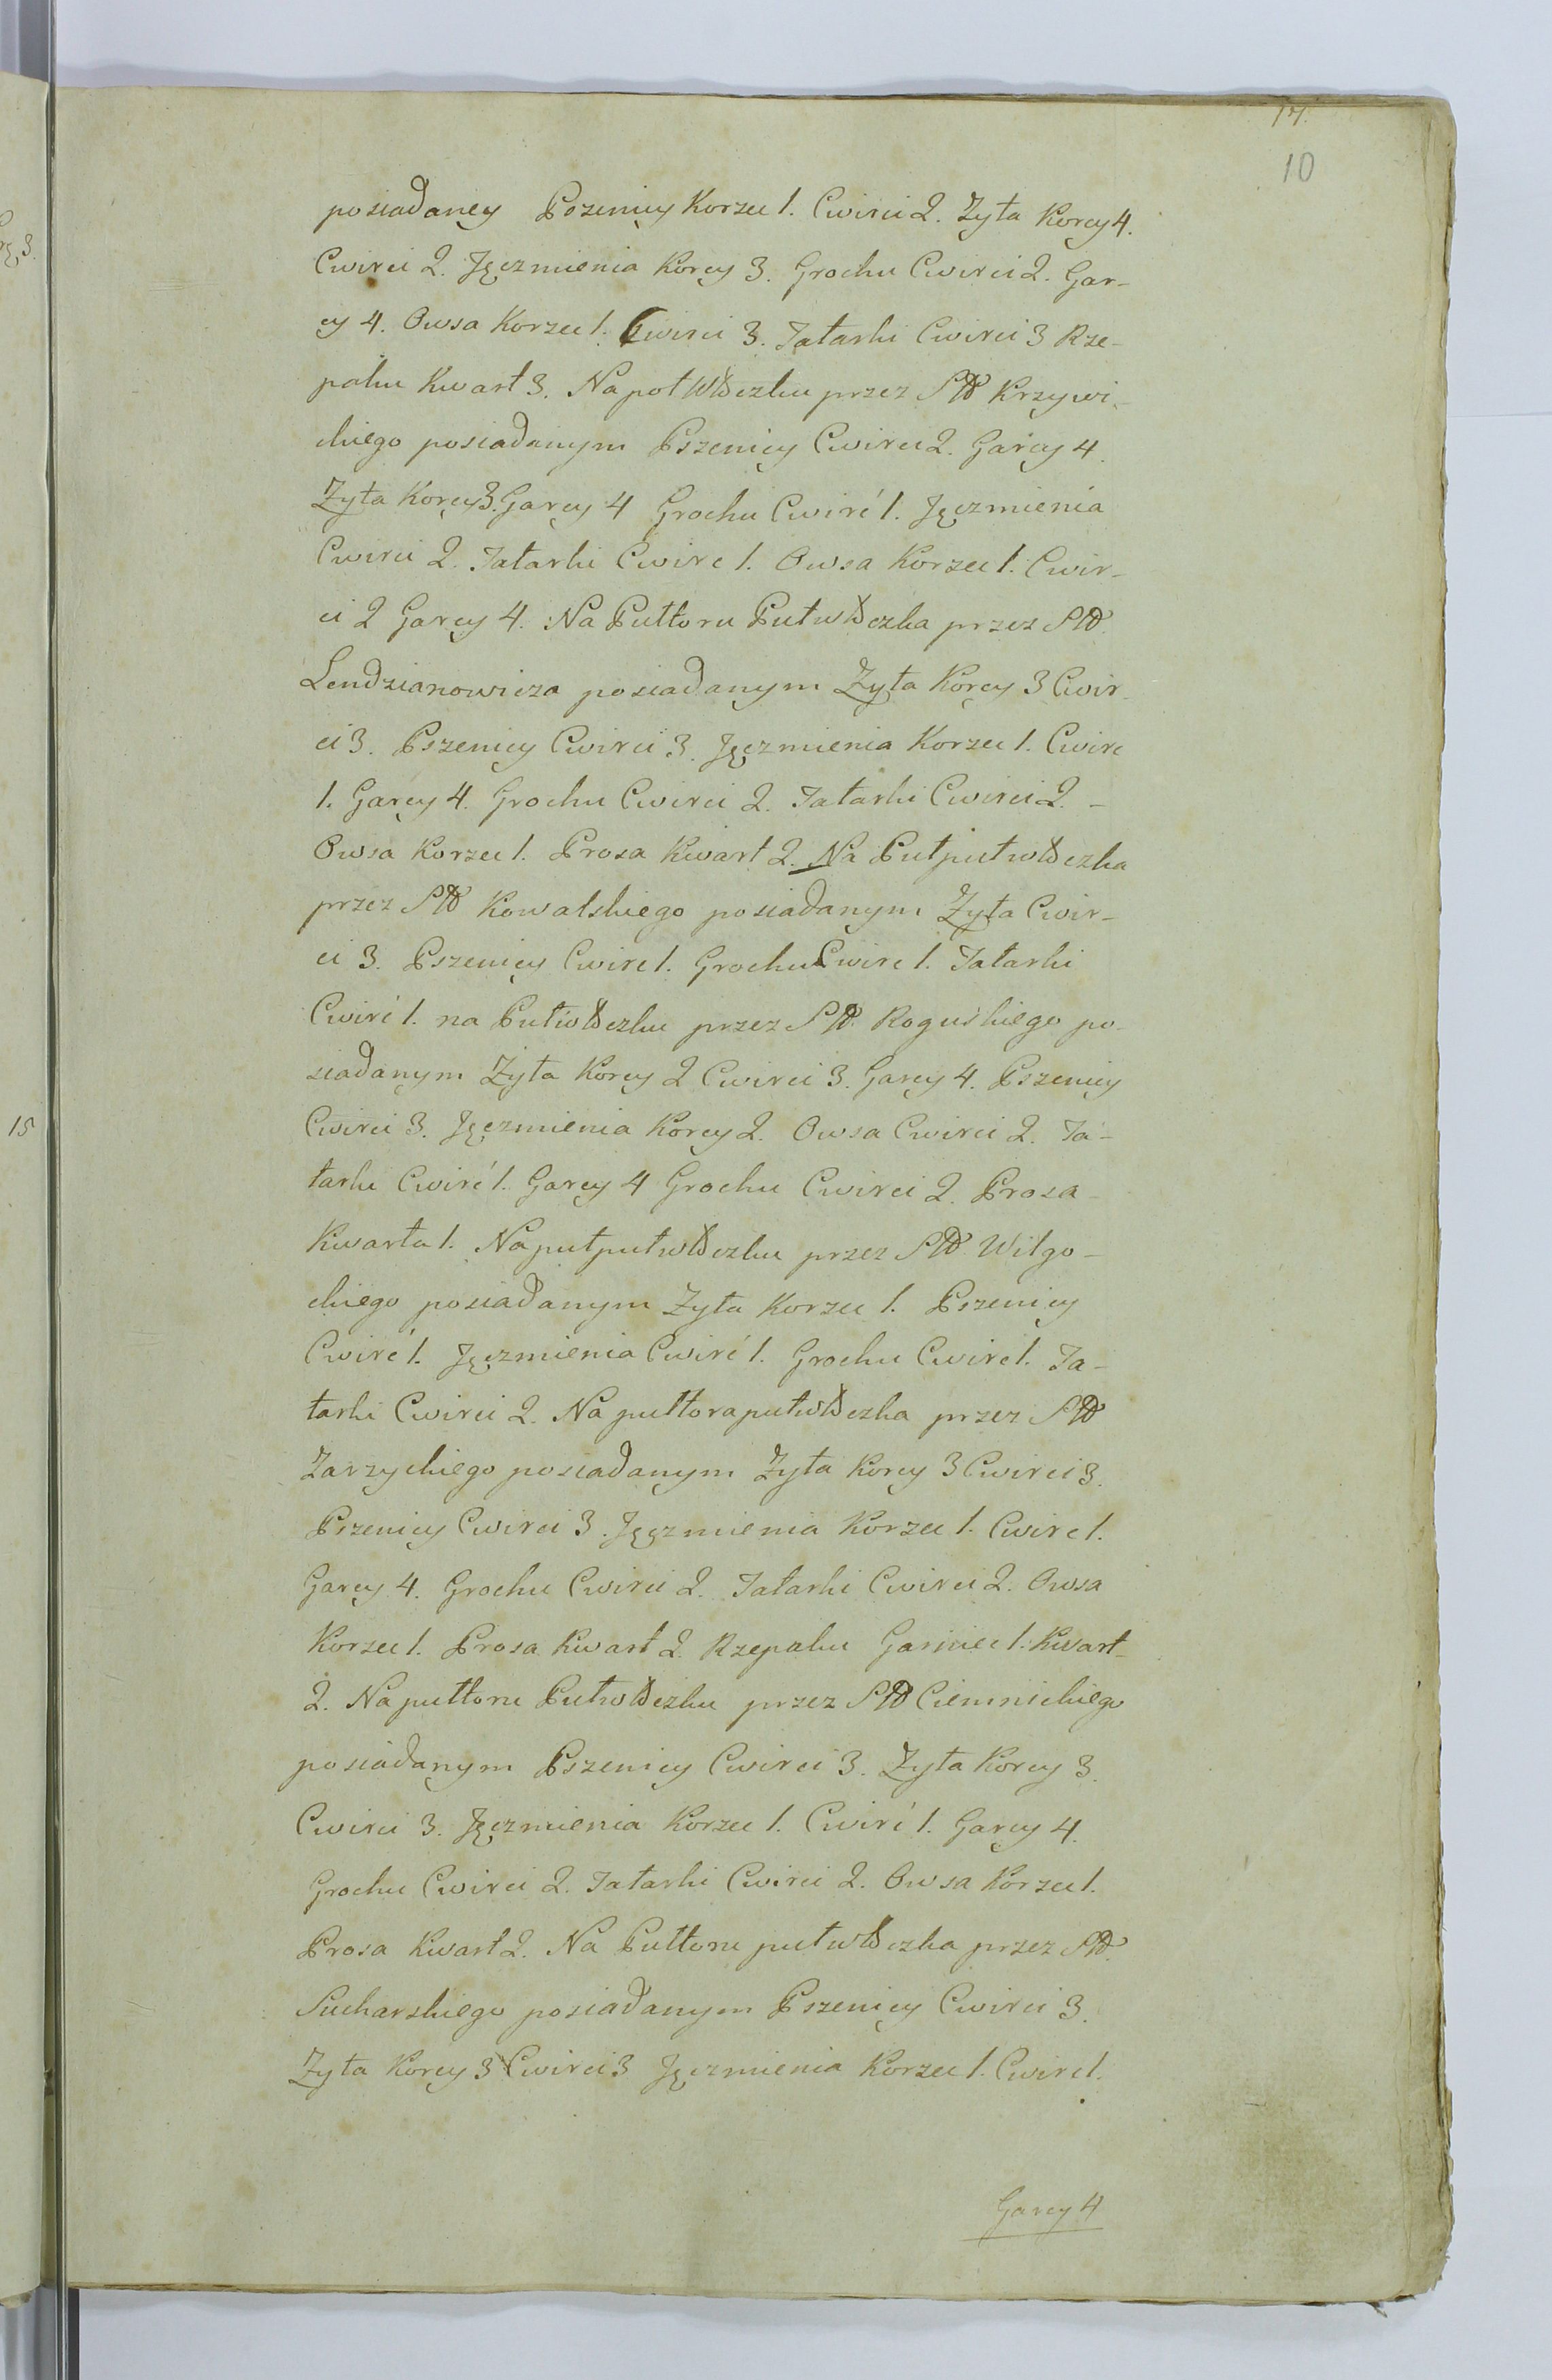 17.
10
posiadaney Pszenicy Korzec 1. Cwirci 2. Zyta Korcy 4.
Cwirci 2. Jęczmienia Korcy 3. Grochu Cwirci 2. Gar-
cy 4. Owsa Korzec 1. Cwirci 3. Tatarki Cwirci 3 Rze-
paku Kwart 3. Na poł Włłczku przez Krzywi-
ckiego posiadanym Pszenicy Cwirci 2. Garcy 4.
Zyta Korcy 3. Garcy 4 Grochu Cwirć 1. Jęczmienia
Cwirci 2. Tatarki Cwirc 1. Owsa Korzec 1. Cwir-
ci 2 Garcy 4. Na Pułtoru przez
Lendzianowicza posiadanym Zyta Korcy 3 Cwir-
ci 3. Pszenicy Cwirci 3. Jęczmienia Korzec 1. Cwirc
1. Garcy 4. Grochu Cwirci 2. Tatarki Cwirci 2. -
Owsa Korzec 1. Prosa Kwart 2. Na
przez Kowalskiego posiadanym Żyta Cwir-
ci 3. Pszenicy Cwirc 1. Grochu Cwirc 1. Tatarki
Cwirć 1. na przez Roguskiego po-
siadanym Żyta Korcy 2 Cwirci 3. Garcy 4. Pszenicy
Cwirci 3. Jęczmienia Korcy 2. Owsa Cwirci 2. Ta-
tarki Cwirć 1. Garcy 4 Grochu Cwirci 2. Prosa
Kwarta 1. Na przez Wilgo-
ckiego posiadanym Zyta Korzec 1. Pszenicy
Cwirć 1. Jęczmienia Cwirć 1. Grochu Cwirc 1. Ta-
tarki Cwirci 2. Na przez
Zarzyckiego posiadanym Zyta Korcy 3 Cwirci 3.
Pszenicy Cwirci 3. Jęczmienia Korzec 1. Cwirc 1.
Garcy 4. Grochu Cwirci 2. Tatarki Cwirci 2. Owsa
Korzec 1. Prosa Kwart 2. Rzepaku Garniec 1. Kwart
2. Na pułtoru przez Ciemnickiego
posiadanym Pszenicy Cwirci 3. Zyta Korcy 3.
Cwirci 3. Jęczmienia Korzec 1. Cwirć 1. Garcy 4.
Grochu Cwirci 2. Tatarki Cwirci 2. Owsa Korzec 1.
Prosa Kwart 2. Na Pułtoru przez
Sucharskiego posiadanym Pszenicy Cwirci 3.
Zyta Korcy 3 Cwirci 3 Jęczmienia Korzec 1. Cwirc 1.
Garcy 4
15